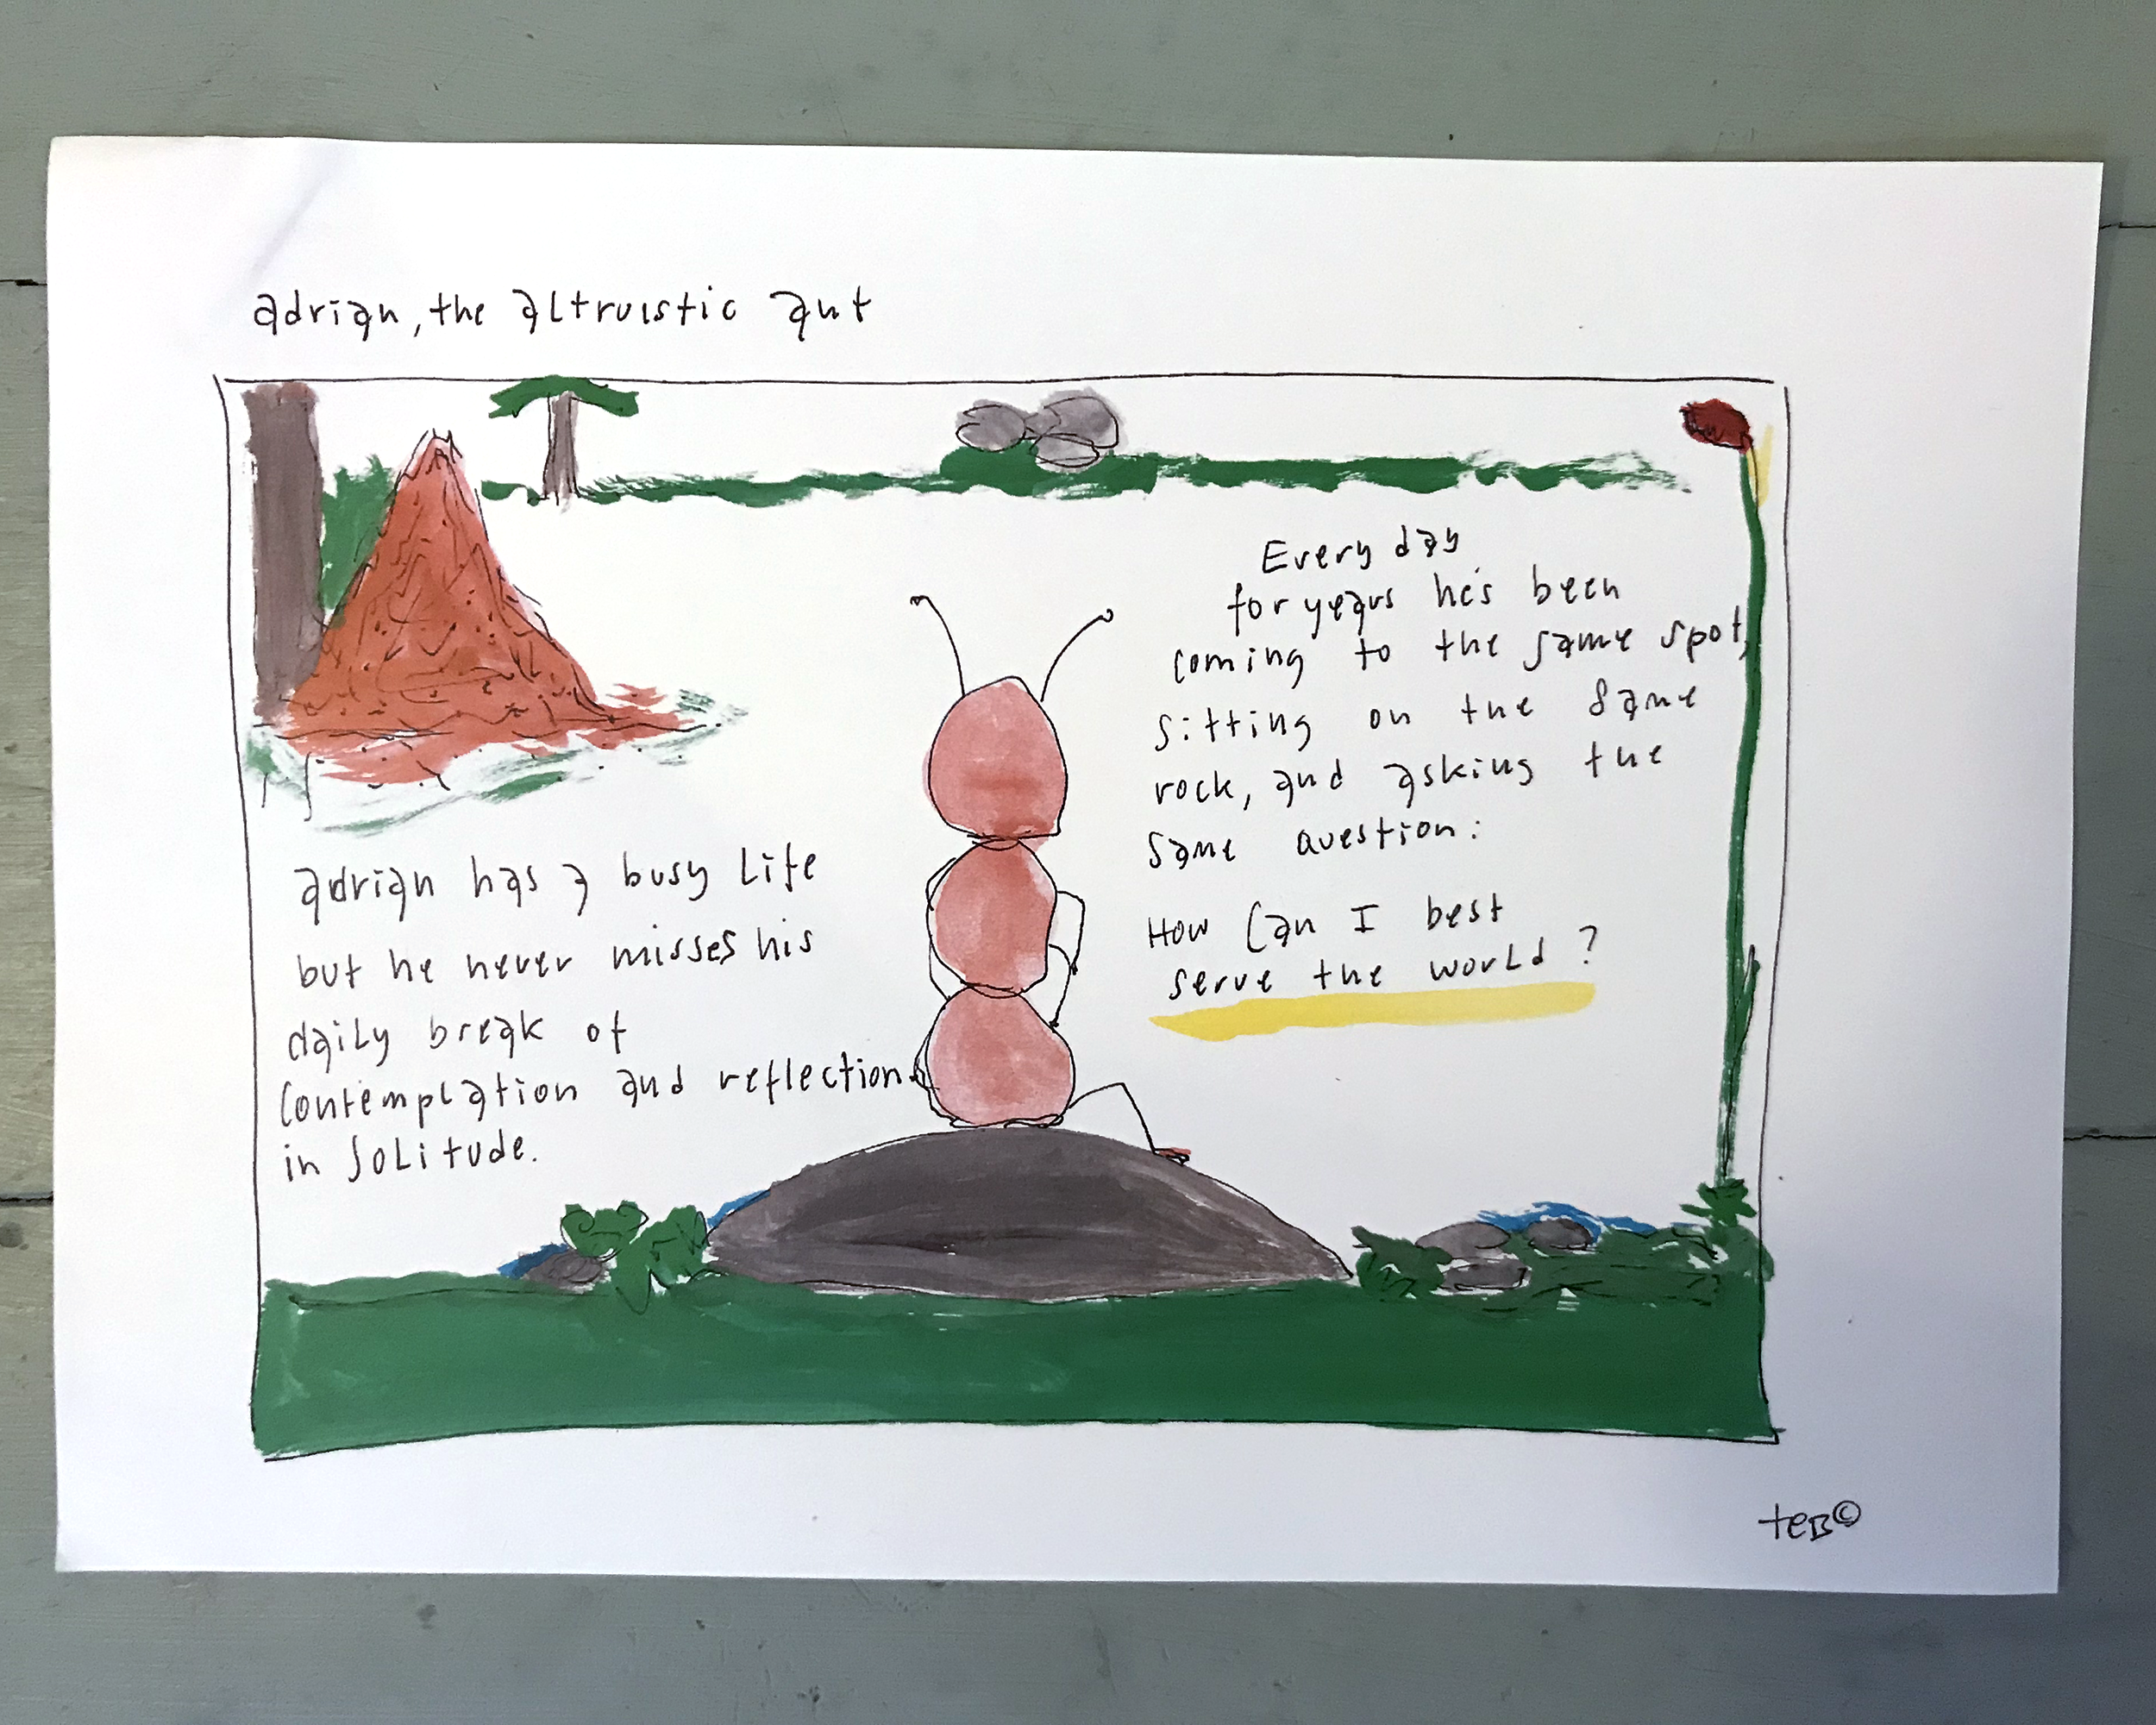 adrian, the altruistic ant
adrian has a busy life
but he never misses his
daily break of
contemplation and reflection
in solitude.
Every day
for years he's been
coming to the same spot,
sitting on the same
rock, and asking the
same question:
How can I best
serve the world?
teB©